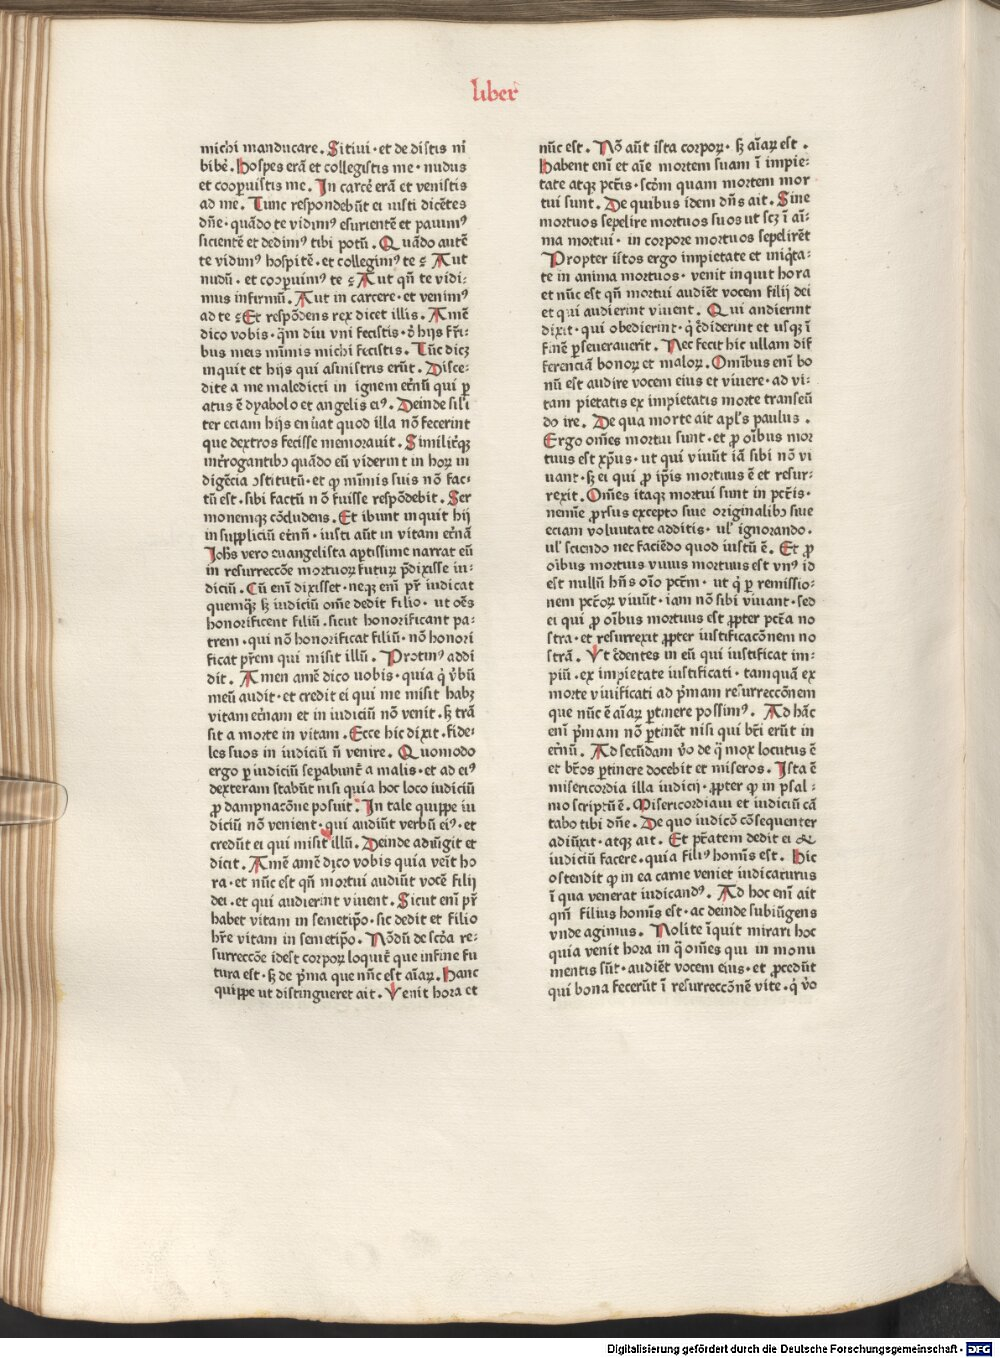 liber
michi manducare. Sitiui · et de distis mi
bibe᷑. Hospes erã et collegistis me · nudus
et cooꝑuistis me. In carce᷑ erã et venistis
ad me. Tunc respondebũt ei iusti dicẽtes
dñe · quãdo te vidimꝰ esurientẽ et pauimꝰ
sicientẽ et dedimꝰ tibi potũ. Quãdo autẽ
te vidimꝰ hospitẽ · et collegimꝰ te ꝫ Aut
nudũ · et cooꝑuimꝰ te ꝫ Aut qñ te vidi⸗
mus infirmũ. Aut in carcere · et venimꝰ
ad te ꝫ Et respõdens rex dicet illis. Amẽ
dico vobis · q̃m diu vni fecistis · ð hijs fr̃i⸗
bus meis minimis michi fecistis. Tũc dicꝫ
inquit et hijs qui asinistris erũt. Disce⸗
dite a me maledicti in ignem et̃nũ qui ꝑ
atus ẽ dyabolo et angelis eiꝰ. Deinde sil'i
ter eciam hijs enũiat quod illa nõ fecerint
que dextros fecisse memorauit. Similit᷑qꝫ
int᷑rogantibꝰ quãdo eũ viderint in hoꝝ in
digẽcia ↄstitutũ · et ꝙ minimis suis nõ fac⸗
tũ est · sibi factũ nõ fuisse respõdebit. Ser
monemqꝫ cõcludens. Et ibunt inquit hij
in suppliciũ et̃nũ · iusti aũt in vitam et̃nã
Joh̃s vero euangelista aptissime narrat eũ
in resurreccõe mortuoꝝ futuꝝ p̃dixisse iu⸗
diciũ. Cũ eni᷑ dixisset · neqꝫ eni᷑ pr̃ iudicat
quemqꝫ sꝫ iudiciũ om̃e dedit filio · ut oẽs
honorificent filiũ · sicut honorificant pa⸗
trem · qui nõ honorificat filiũ · nõ honori
ficat pr̃em qui misit illũ. Protinꝰ addi
dit. Amen amẽ dico uobis · quia q̇ v̑bũ
meũ audit · et credit ei qui me misit habꝫ
vitam et̃nam et in iudiciũ nõ venit · sꝫ trã
sit a morte in vitam. Ecce hic dixit · fide⸗
les suos in iudiciũ ñ venire. Quomodo
ergo ꝑ iudiciũ seꝑabunt᷑ a malis · et ad eiꝰ
dexteram stabũt nisi quia hoc loco iudiciũ
ꝓ dampnacõne posuit. In tale quippe iu
diciũ nõ venient · qui audiũt verbũ eiꝰ · et
credũt ei qui misit illũ. Deinde adiũgit et
dicit. Amẽ amẽ dico vobis quia veĩt ho
ra · et nũc est qñ mortui audiũt vocẽ filij
dei · et qui audierint viuent. Sicut eni᷑ pr̃
habet vitam in semetip̃o · sic dedit et filio
hr̃e vitam in semetip̃o. Nõdũ de sc̃da re⸗
surreccõe idest corpoꝝ loquit᷑ que infine fu
tura est · sꝫ de p̃ma que nũc est aĩaꝝ. Hanc
quippe ut distingueret ait. Venit hora et
nũc est. Nõ aũt ista corpoꝝ · sꝫ aĩaꝝ est.
Habent eni᷑ et aĩe mortem suam ĩ impie⸗
tate atqꝫ pct̃is · sc̃dm quam mortem mor
tui sunt. De quibus idem dñs ait. Sine
mortuos sepelire mortuos suos ut scꝫ ĩ aĩ⸗
ma mortui · in corpore mortuos sepelirẽt
Propter istos ergo impietate et iniq̇ta⸗
te in anima mortuos · venit inquit hora
et nũc est qñ mortui audiẽt vocem filij dei
et qui audierint viuent. Qui audierint
dixit · qui obedierint · q̇ c᷑diderint et usqꝫ ĩ
finẽ ꝑseuerauerit. Nec fecit hic ullam dif
ferenciã bonoꝝ et maloꝝ. Om̃ibus eni᷑ bo
nũ est audire vocem eius et viuere · ad vi⸗
tam pietatis ex impietatis morte transeũ
do ire. De qua morte ait apl's paulus.
Ergo om̃es mortui sunt · et ꝓ oĩbus mor
tuus est xp̃us · ut qui viuũt iã sibi nõ vi
uant · sꝫ ei qui ꝓ ip̃is mortuus ẽ et resur⸗
rexit. Om̃es itaqꝫ mortui sunt in pct̃is ·
nemĩe ꝓrsus excepto siue originalibꝰ siue
eciam voluntate additis · ul' ignorando ·
ul' sciendo nec faciẽdo quod iustũ ẽ. Et ꝓ
oĩbus mortuus viuus mortuus est vnꝰ id
est nullũ hñs oĩo pct̃m · ut q̇ ꝑ remissio⸗
nem pct̃oꝝ viuũt · iam nõ sibi viuant · sed
ei qui ꝓ oĩbus mortuus est ꝓpter pct̃a no
stra · et resurrexit ꝓpter iustificacõnem no
strã. Vt c᷑dentes in eũ qui iustificat im⸗
piũ · ex impietate iustificati · tamquã ex
morte viuificati ad p̃mam resurreccõnem
que nũc ẽ aĩaꝝ ꝑtinere possimꝰ. Ad hãc
eni᷑ p̃mam nõ ꝑtinẽt nisi qui bt̃i erũt in
et̃nũ. Ad secũdam v̑o de q̃ mox locutus ẽ
et bt̃os ꝑtinere docebit et miseros. Ista ẽ
misericordia illa iudicij · ꝓpter ꝙ in psal⸗
mo scriptũ ẽ. Misericordiam et iudiciũ cã
tabo tibi dñe. De quo iudicõ cõsequenter
adiũxit · atqꝫ ait. Et pt̃atem dedit ei &
iudiciũ facere · quia filiꝰ homĩs est. Hic
ostendit ꝙ in ea carne veniet iudicaturus
ĩ qua venerat iudicandꝰ. Ad hoc eni᷑ ait
qm̃ filius homĩs est · ac deinde subiũgens
vnde agimus. Nolite ĩquit mirari hoc
quia venit hora in q̃ om̃es qui in monu
mentis sũt · audiẽt vocem eius · et ꝓcedũt
qui bona fecerũt ĩ resurreccõnẽ vite · q̇ v̑o
Digitalisierung gefördert durch die Deutsche Forschungsgemeinschaft - DFG